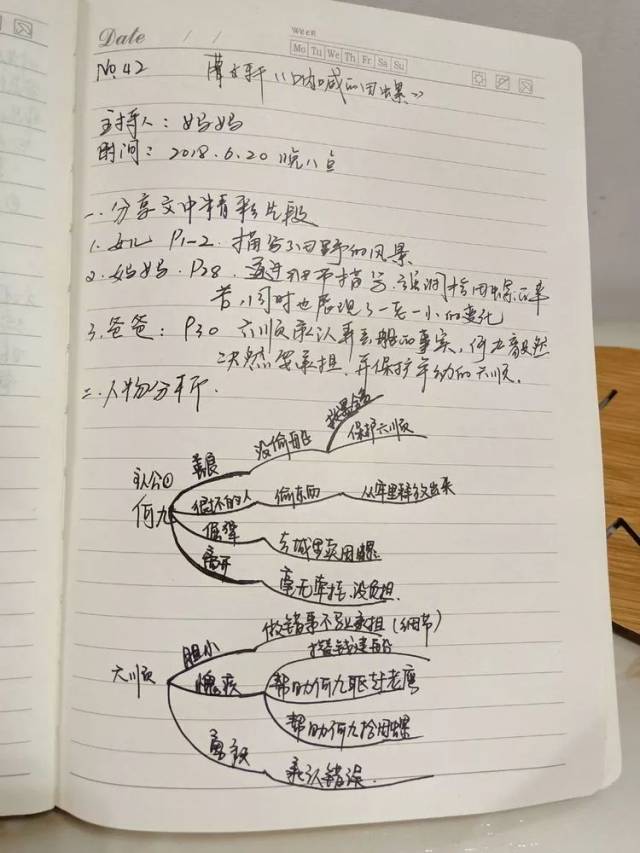 Date / /
Week
Mo Tu We Th Fr Sa Su
No. 42 曹文轩《呐喊的田螺》
主持人：妈妈
时间：2018.6.20 晚八点
一.分享文中精彩片段
1.女儿 P1-2. 描写了田野的风景
2.妈妈. P28. 描写, 强调拾田螺的辛
苦,同时也展现了一老一小的变化
3.爸爸：P30 六顺承认弄丢船的事实, 何九毅然
决然要承担, 并保护年幼的六顺.
二.人物分析.
主人公
何九
善良
没偷船
保护六顺
很坏的人
偷东西
从库里释放出来
倔犟
去城里卖田螺
离开
毫无牵挂.没负担.
六顺
胆小
做错事不敢承担(细节)
攒钱造船
愧疚
帮助何九驱赶老鹰
帮助何九拾田螺
勇敢
承认错误.